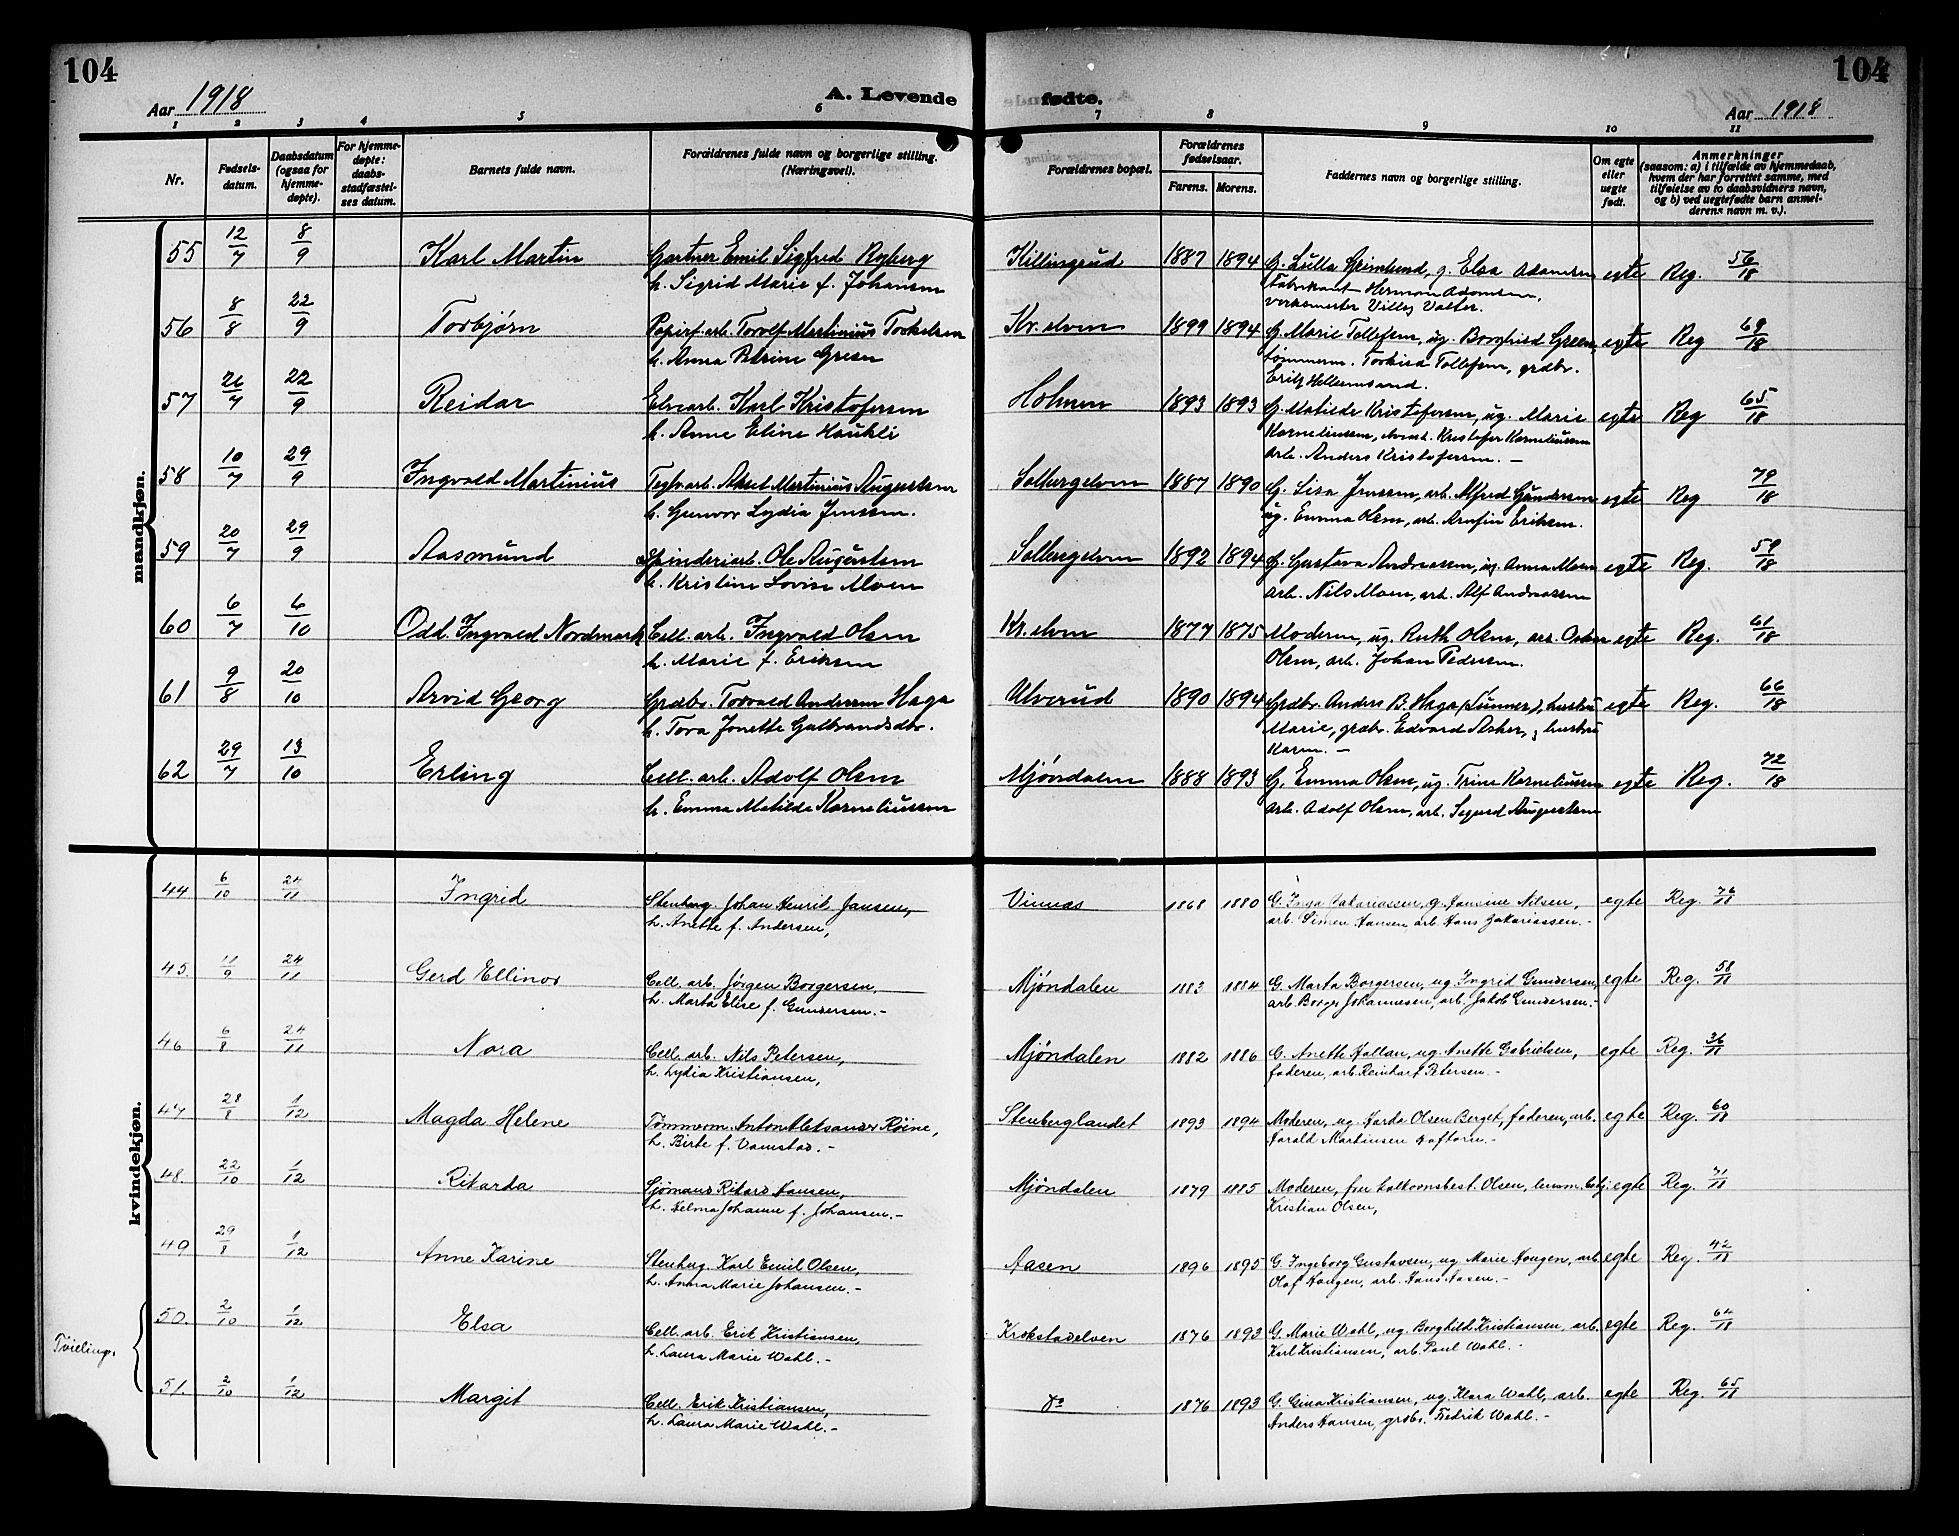 104
104
Aar 1918
A. Levende
fødte.
Aar 1918
1 2 3 4 5 6 7 8 9 10 11
Nr.
Fødsels-
datum.
Daabsdatum
(ogsaa for
hjemme-
døpte).
For hjemme-
døpte:
daabs-
stadfæstel-
ses datum.
Barnets fulde navn.
Forældrenes fulde navn og borgerlige stilling.
(Næringsvei).
Forældrenes bopæl.
Forældrenes
fødselsaar.
Farens. Morens.
Faddernes navn og borgerlige stilling.
Om egte
eller
uegte
født.
Anmerkninger
(saasom: a) i tilfælde av hjemmedaab,
hvem der har forrettet samme, med
tilføielse av to daabsvidners navn,
og b) ved uegtefødte barn anmel-
derens navn m. v.).
mandkjøn.
55 12/7 8/9 Karl Martin Gartner Emil Sigfred Ryberg Killingrud 1887 1894 G. Lulla Grimlund, g. Elsa Adamsen egte Reg. 56/18
h. Sigrid Marie f. Johansen Fabrikant Herman Adamsen,
verksmester Villy Valter.
56 8/8 22/9 Torbjørn Papirf. arb. Torolf Martinius Torkelsen Kr. elven 1899 1894 G. Marie Tollefsen, ug. Borghild Green, egte Reg 69/18
h. Anna Petrine Green tømmerm. Torkild Tollefsen, grdbr.
Erik Hellumsand.
57 26/7 22/9 Reidar Elvearb. Karl Kristofersen Holmen 1893 1893 G. Matilde Kristofersen, ug. Marie egte Reg 65/18
h. Anne Eline Haukli Korneliussen, Kristofer Korneliussen
arb. Anders Kristofersen. —
58 10/7 29/9 Ingvald Martinius Teglv.arb. Aksel Martinius Augustsen Solbergelven 1887 1890 G. Lisa Jenssen, arb. Alfred Gundersen egte Reg 79/18
h. Gunvor Lydia Jenssen. ug. Emma Olsen, arb. Arnfin Eriksen.
59 20/7 29/9 Aasmund Spinderiarb. Ole Augustsen Solbergelven 1892 1894 G. Gustava Andreassen, ug. Anna Moen egte Reg. 59/18
h. Kristine Lovise Moen arb. Nils Moen, arb. Alf Andreassen
60 6/7 6/10 Odd Ingvald Nordmark Cell. arb. Ingvald Olsen Kr. elven 1877 1875 Moderen, ug. Ruth Olsen, arb. Oskar egte Reg. 61/18
h. Marie f. Eriksen Olsen, arb. Johan Pedersen.
61 9/8 20/10 Arvid Georg Grdbr. Torvald Andersen Haga Ulverud 1890 1894 Grdbr. Anders B. Haga (Lunner), hustru egte Reg. 66/18
h. Tora Jonette Gulbrandsdtr. Marie, grdbr. Edvard Asker, & hustru
Karen. —
62 29/7 13/10 Erling Cell. arb. Adolf Olsen Mjøndalen 1888 1893 G. Emma Olsen, ug. Trine Korneliussen egte Reg. 72/18
h. Emma Matilde Korneliussen arb. Adolf Olsen, arb. Sigurd Augustsen
kvindekjøn.
44 6/10 24/11 Ingrid Stenhug. Johan Henrik Jansen, Vinnas 1868 1880 G. Inga Zakariassen, g. Hansine Nilsen, egte Reg. 76/18
h. Anette f. Andersen, arb. Simen Hansen, arb. Hans Zakariassen. -
45. 11/9 24/11 Gerd Ellinor Cell. arb. Jørgen Borgersen, Mjöndalen 1883 1884 G. Marta Borgersen, ug. Ingrid Gundersen, egte Reg. 58/18
h. Marta Elise f. Gundersen. - arb. Borger Johannesen, arb. Jakob Gundersen. -
46 6/8 24/11 Nora Cell. arb. Nils Petersen, Mjöndalen 1882 1886 G. Anette Hallan, ug. Anette Gabrielsen, egte Reg. 36/18
h. Lydia Kristiansen, faderen, arb. Reinhart Petersen. -
47 28/8 1/12 Magda Helene Tømmerm. Anton Aleksander Röine, Stenberglandet 1893 1894 Moderen, ug. Harda Olsen Berget, faderen, arb. egte Reg. 60/18
h. Birte f. Vamstad. - Harald Martinsen Haftorn. -
48. 22/10 1/12 Rikarda Sjømand Rikard Hansen, Mjöndalen 1879 1885 Moderen, fru balkornsbest. Olsen, lensm. betj. egte Reg. 71/18
h. Helma Johanne f. Johansen. - Kristian Olsen,
49 29/8 1/12 Anne Karine Stenhug. Karl Emil Olsen, Aasen 1896 1895 G. Ingeborg Gustavsen, ug Marie Haugen, arb. egte Reg. 42/18
h. Anna Marie Johansen. - Olaf Haugen, arb. Hans Aasen. -
Tvilling.
50. 2/10 1/12 Elsa Cell. arb. Erik Kristiansen, Krokstadelven 1876 1893 G. Marie Wahl, ug. Borghild Kristiansen, arb. egte Reg. 64/18
h. Laura Marie Wahl. - Karl Kristiansen, arb. Paul Wahl. -
51. 2/10 1/12 Margit Cell. Erik Kristiansen, do 1876 1893 G. Gina Kristiansen, ug Klara Wahl, arb. egte Reg. 65/18
h. Laura Marie Wahl. - Anders Hansen, grdbr. Fredrik Wahl. -